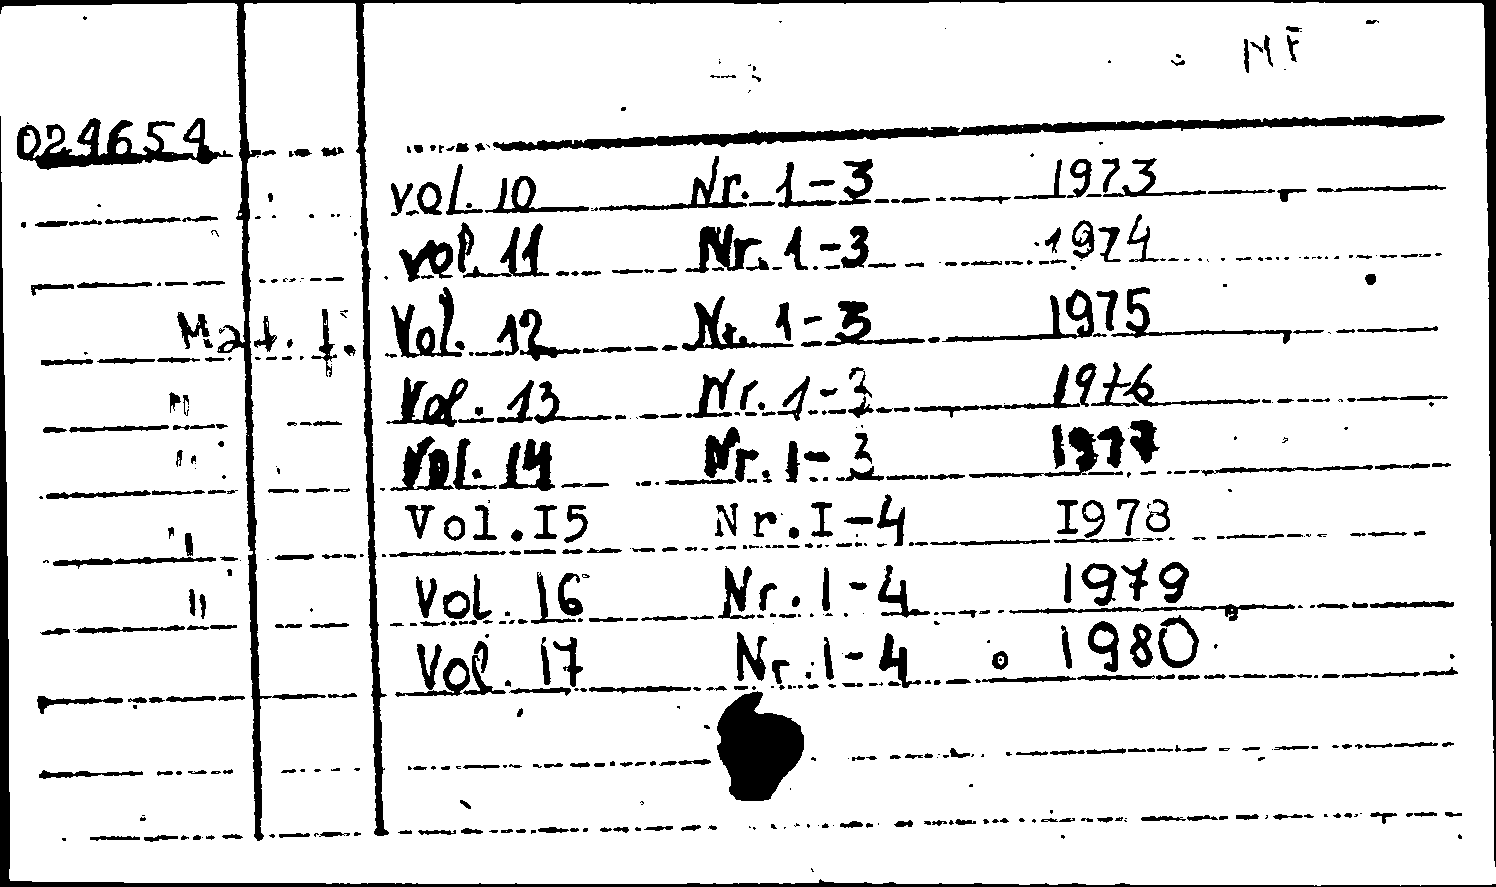 MF
024654
vol. 10 Nr. 1-3 1973
vol. 11 Nr. 1-3 1974
Mat. f. Vol. 12 Nr. 1-3 1975
" Vol. 13 Nr. 1-3 1976
" Vol. 14 Nr. 1-3 1977
" Vol.I5 Nr.I-4 I978
" Vol. 16 Nr. 1-4 1979
Vol. 17 Nr. 1-4 1980